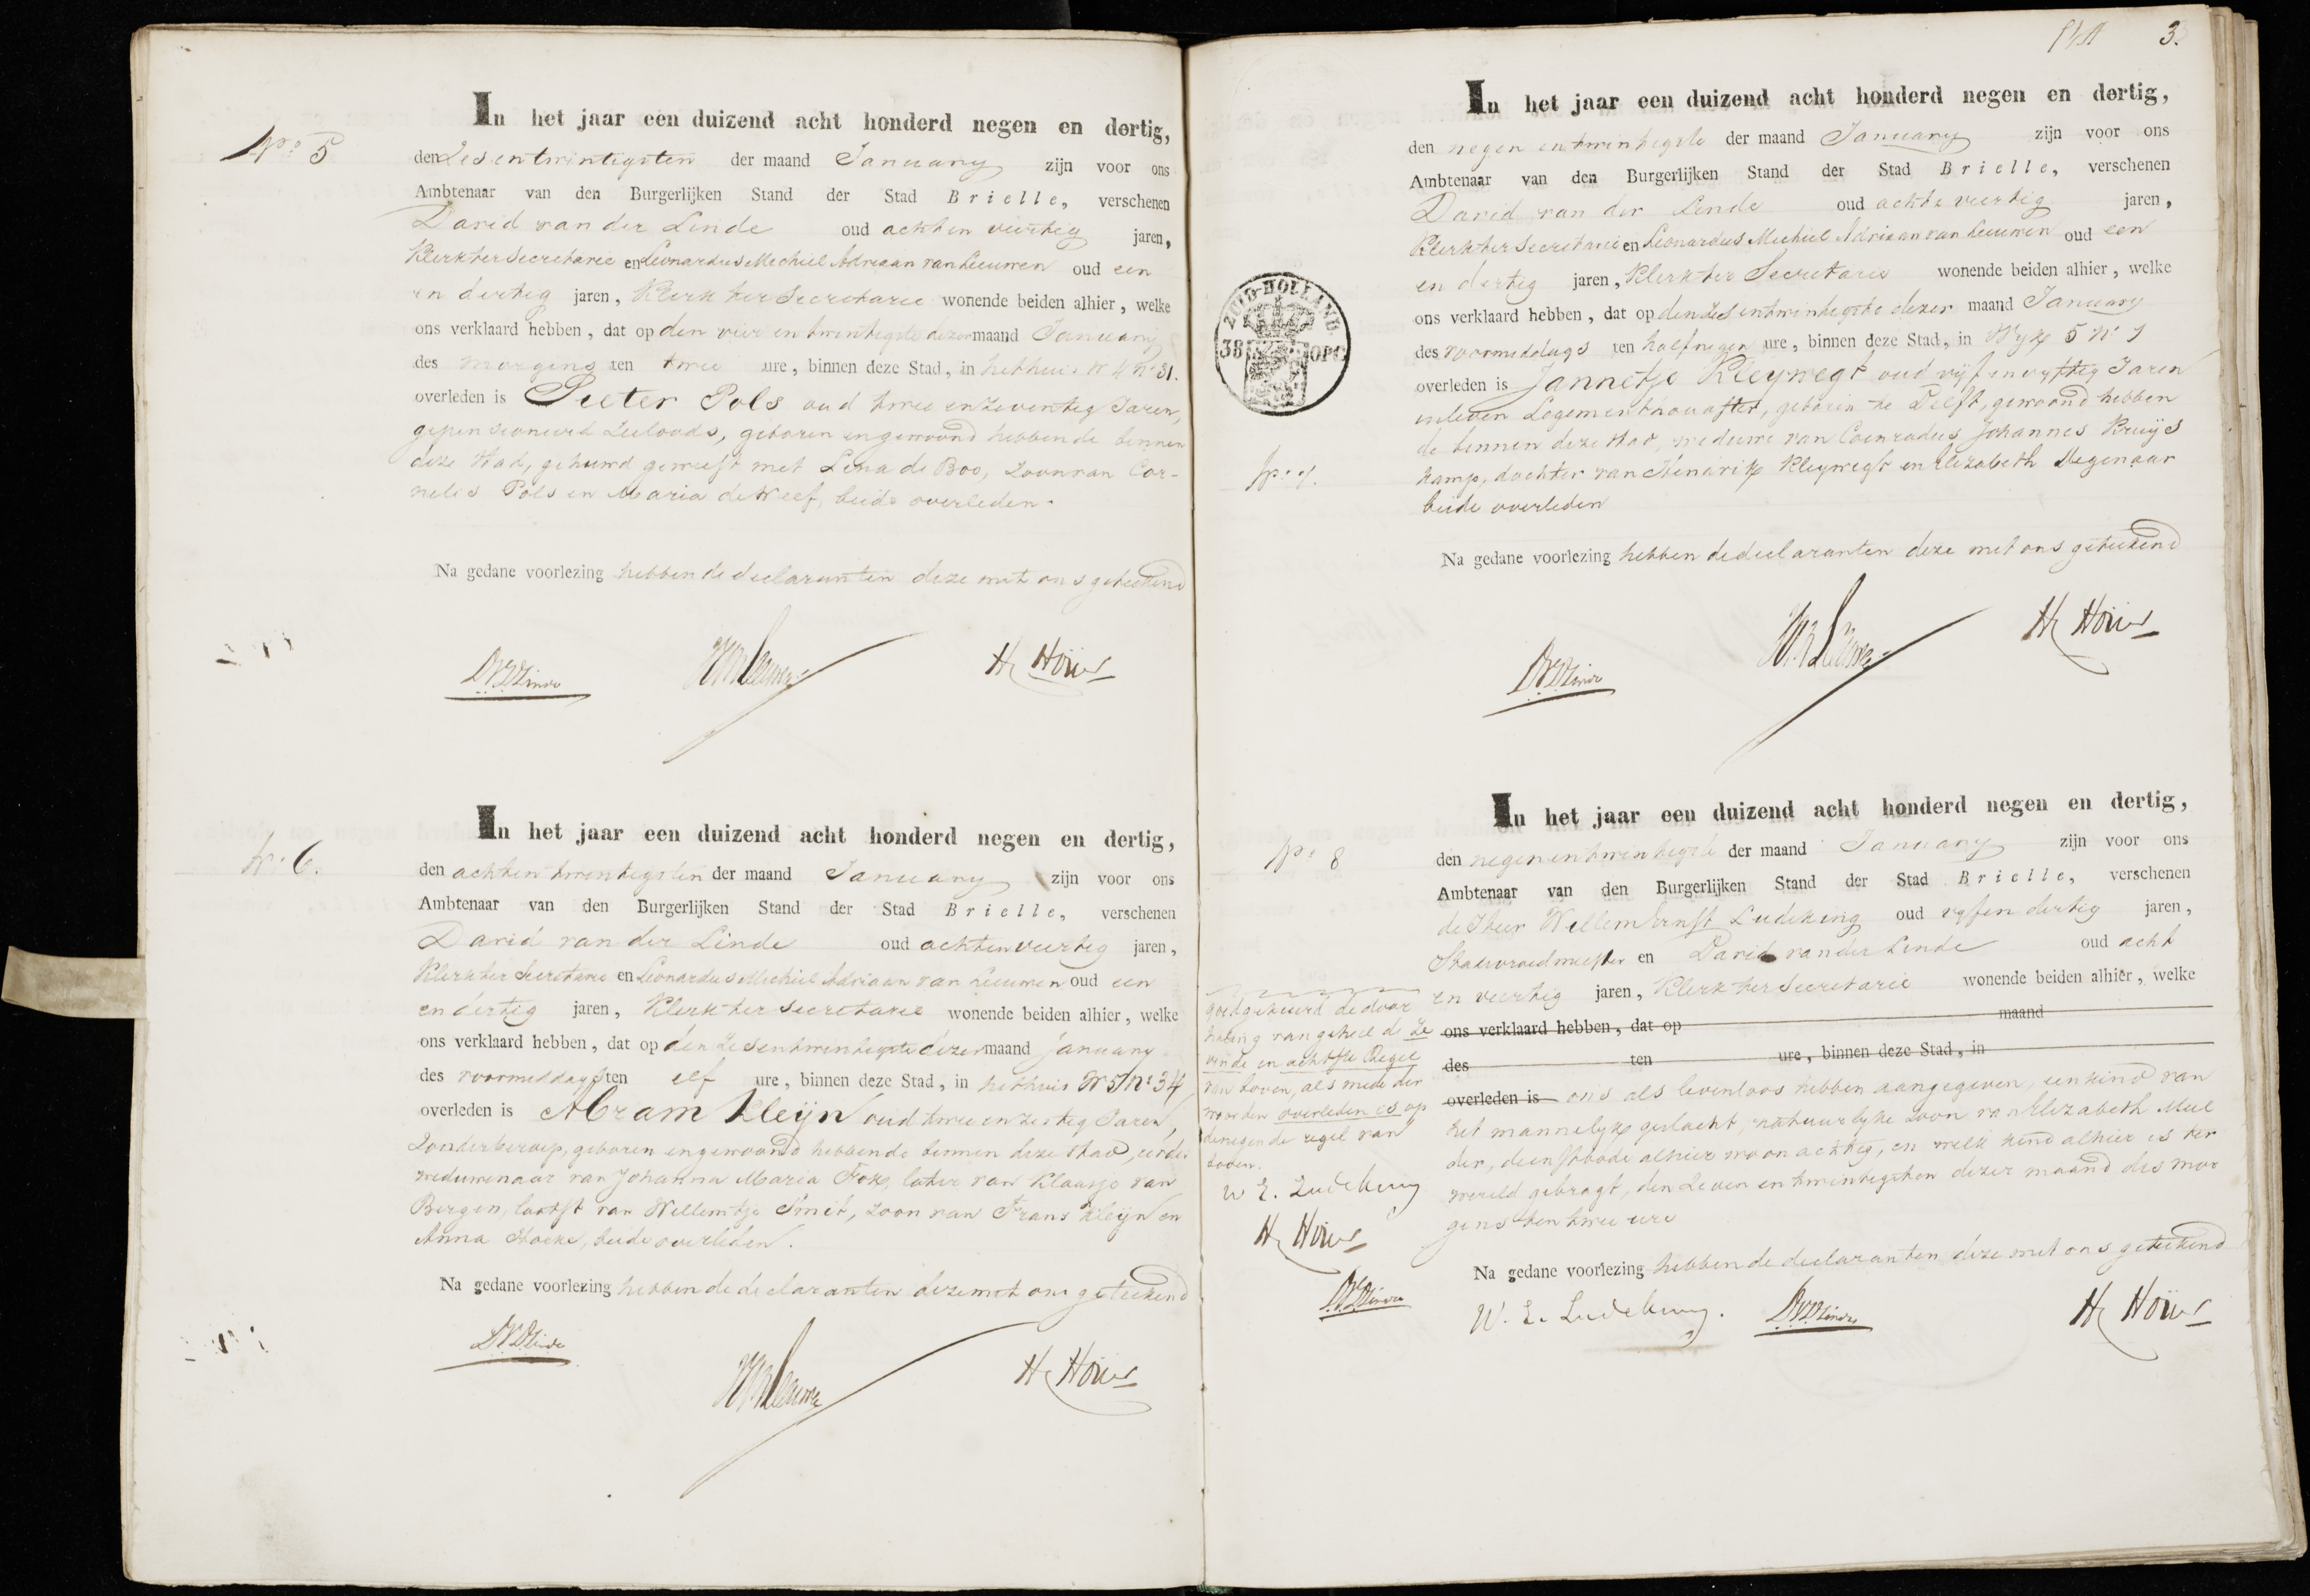 No 5
In het jaar een duizend acht honderd negen en dertig,
den Zesentwintigsten der maand January zijn voor ons
Ambtenaar van den Burgerlijken Stand der Stad Brielle, verschenen
David van der Linde oud achten veertig jaren,
Klerk ter Secretarie en Leonardus Mechiel Adriaan van Leeuwen oud een
en dertig jaren, Klerk ter Secretarie wonende beiden alhier, welke
ons verklaard hebben, dat op den vier en twintigste dezer maand January
des morgens ten twee ure, binnen deze Stad, in het huis W 4 No 31.
overleden is Pieter Pols oud twee en zeventig Jaren,
gepensioneerd Zeeloods, geboren en gewoond hebbende binnen
deze Stad, gehuwd geweest met Lena de Boo, Zoon van Cor-
nelis Pols en Maria de Neef, beide overleden.
Na gedane voorlezing hebben de declaranten deze met ons geteekend
DVDLinde
H Hoüer
No 6.
In het jaar een duizend acht honderd negen en dertig,
den achten twintigsten der maand January zijn voor ons
Ambtenaar van den Burgerlijken Stand der Stad Brielle, verschenen
David van der Linde oud achtenveertig jaren,
Klerk ter Secretarie en Leonardus Michiel Adriaan van Leeuwen oud een
en dertig jaren, Klerk ter Secretarie wonende beiden alhier, welke
ons verklaard hebben, dat op den Zesentwintigste dezer maand January
des voormiddags ten elf ure, binnen deze Stad, in het huis W 5 No 34
overleden is Abram Kleijn oud twee en zestig Jaren,
Zonder beroep, geboren en gewoond hebbende binnen deze Stad, eerder
weduwenaar van Johanna Maria Fok, later van Klaasje van
Bergen, laatst van Willemtje Smit, Zoon van Frans Kleijn en
Anna Hoeke, beide overleden.
Na gedane voorlezing hebben de declaranten deze met ons geteekend
DVDLinde
H Hoüer
3.
In het jaar een duizend acht honderd negen en dertig,
den negen entwintigste der maand January zijn voor ons
Ambtenaar van den Burgerlijken Stand der Stad Brielle, verschenen
David van der Linde oud achten veertig jaren,
Klerk ter Secretarie en Leonardus Mechiel Adriaan van Leeuwen oud een
en dertig jaren, Klerk ter Secretarie wonende beiden alhier, welke
ons verklaard hebben, dat op den Zes entwintigste dezer maand January
des voormiddags ten half negen ure, binnen deze Stad, in Wyk 5 No 1
overleden is Jannetje Kleywegt oud vijf en vyftig Jaren
in leven Logementhoudster, geboren te Delft, gewoond hebben
de binnen deze Stad, weduwe van Coenradus Johannes Kruijs
kamp, dochter van Hendrik Kleywegt en Elizabeth Wegenaar
beide overleden
ZUID-HOLLAND
38 OPC
No 7.
Na gedane voorlezing hebben de declaranten deze met ons geteekend
DVDLinde
H Hoüer
No 8
In het jaar een duizend acht honderd negen en dertig,
den negenentwintigste der maand January zijn voor ons
Ambtenaar van den Burgerlijken Stand der Stad Brielle, verschenen
de Heer Willem Ernst Ludeking oud vyfen dertig jaren,
Stadsvroedmeester en David van der Linde oud acht
en veertig jaren, Klerk ter Secretarie wonende beiden alhier, welke
ons verklaard hebben, dat op maand
des ten ure, binnen deze Stad, in
overleden is ons als levenloos hebben aangegeven, een kind van
het mannelyk geslacht, natuurlyke Zoon van Elizabeth Mul
der, dienstbode alhier woonachtig, en welk kind alhier is ter
wereld gebragt, den Zeven en twintigsten dezer maand des mor
gens ten twee ure
Na gedane voorlezing hebben de declaranten deze met ons geteekend
W. E. Ludeking. DVDLinde H Hoüer
goedgekeurd de door
haling van geheel de Ze
vende en achtste Regel
van boven, als mede der
woorden overleden is op
de negende regel van
boven.
W E. Ludeking
H Hoüer
DVDLinde